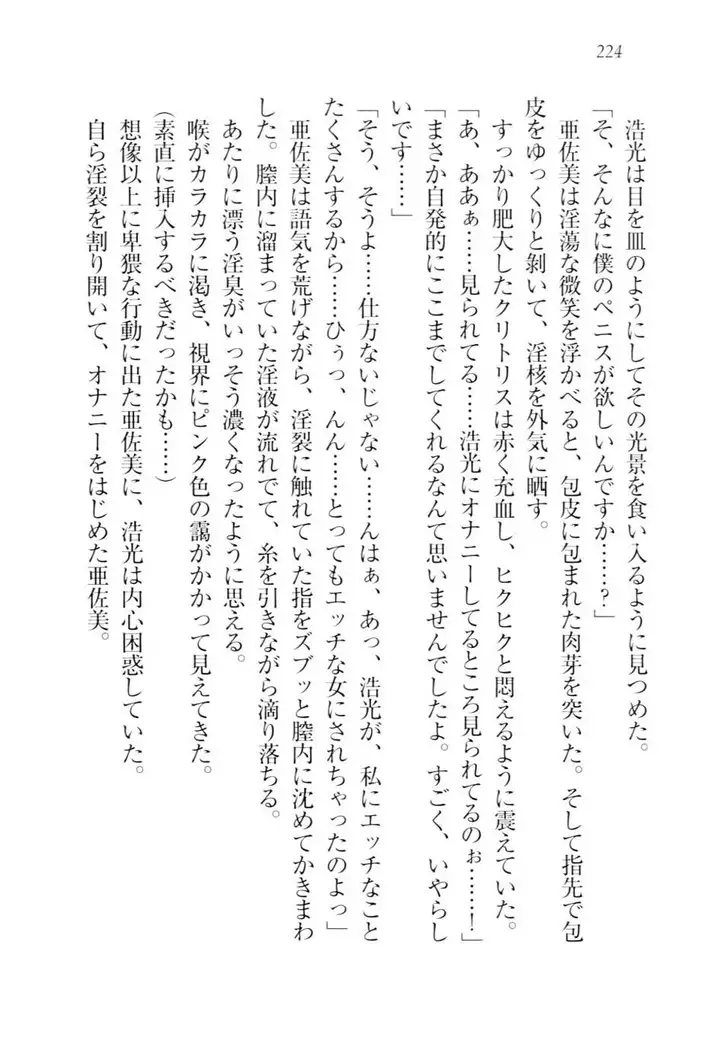 224
浩光は目を皿のようにしてその光景を食い入るように見つめた。
「そ、そんなに僕のペニスが欲しいんですか……?」
亜佐美は淫蕩な微笑を浮かべると、包皮に包まれた肉芽を突いた。そして指先で包
皮をゆっくりと剝いて、淫核を外気に晒す。
すっかり肥大したクリトリスは赤く充血し、ヒクヒクと悶えるように震えていた。
「あ、ああぁ……見られてる……浩光にオナニーしてるところ見られてるのぉ……!」
「まさか自発的にここまでしてくれるなんて思いませんでしたよ。すごく、いやらし
いです……」
「そう、そうよ……仕方ないじゃない……んはぁ、あっ、浩光が、私にエッチなこと
たくさんするから……ひぅっ、んん……とってもエッチな女にされちゃったのよっ」
亜佐美は語気を荒げながら、淫裂に触れていた指をズブッと膣内に沈めてかきまわ
した。膣内に溜まっていた淫液が流れでて、糸を引きながら滴り落ちる。
あたりに漂う淫臭がいっそう濃くなったように思える。
喉がカラカラに渇き、視界にピンク色の靄がかかって見えてきた。
(素直に挿入するべきだったかも……)
想像以上に卑猥な行動に出た亜佐美に、浩光は内心困惑していた。
自ら淫裂を割り開いて、オナニーをはじめた亜佐美。